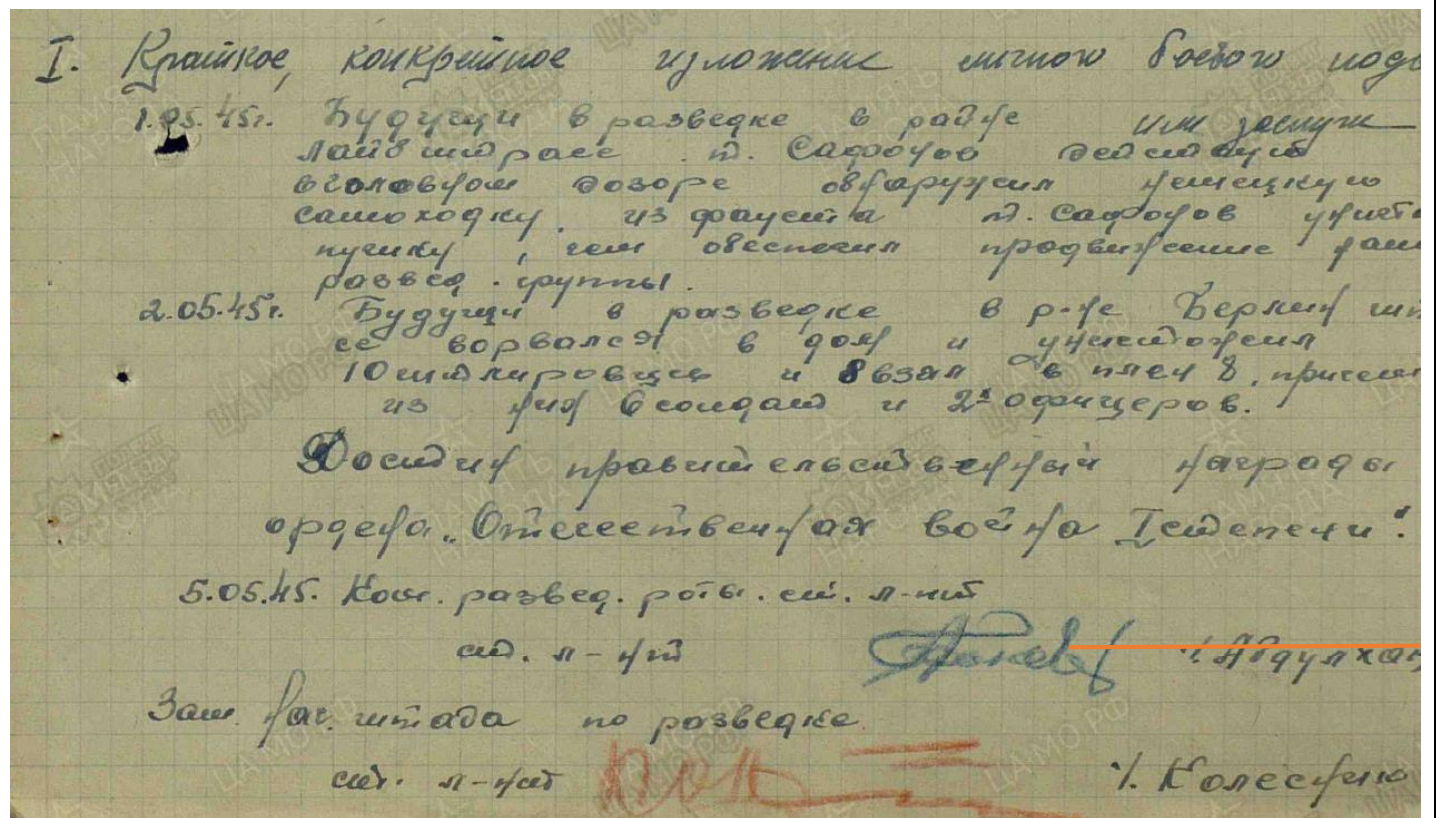 I. Краткое, конкретное изложение личного боевого подв
или заслуги
1.05.45г. Будучи в разведке в районе
Лайвштрасе т. Сафонов действуя
в головном дозоре обнаружил немецкую
самоходку, из фауста т. Сафонов уничто
пушку, чем обеспечил продвижение наш
развед. группы.
2.05.45г. Будучи в разведке в р-не Берлин шт
се ворвался в дом и уничтожил
10 гитлеровцев и 8 взял в плен 8, причем
из них 6 солдат и 2х офицеров.
Достоин правительственный награды
ордена „Отечественная война I степени“.
5.05.45. Ком. развед. роты. ст. л-нт
ст. л-нт /. Абдулхан
Зам. нач. штаба по разведке
ст. л-нт /. Колесник
ПАМЯТЬ НАРОДА
ЦАМО РФ